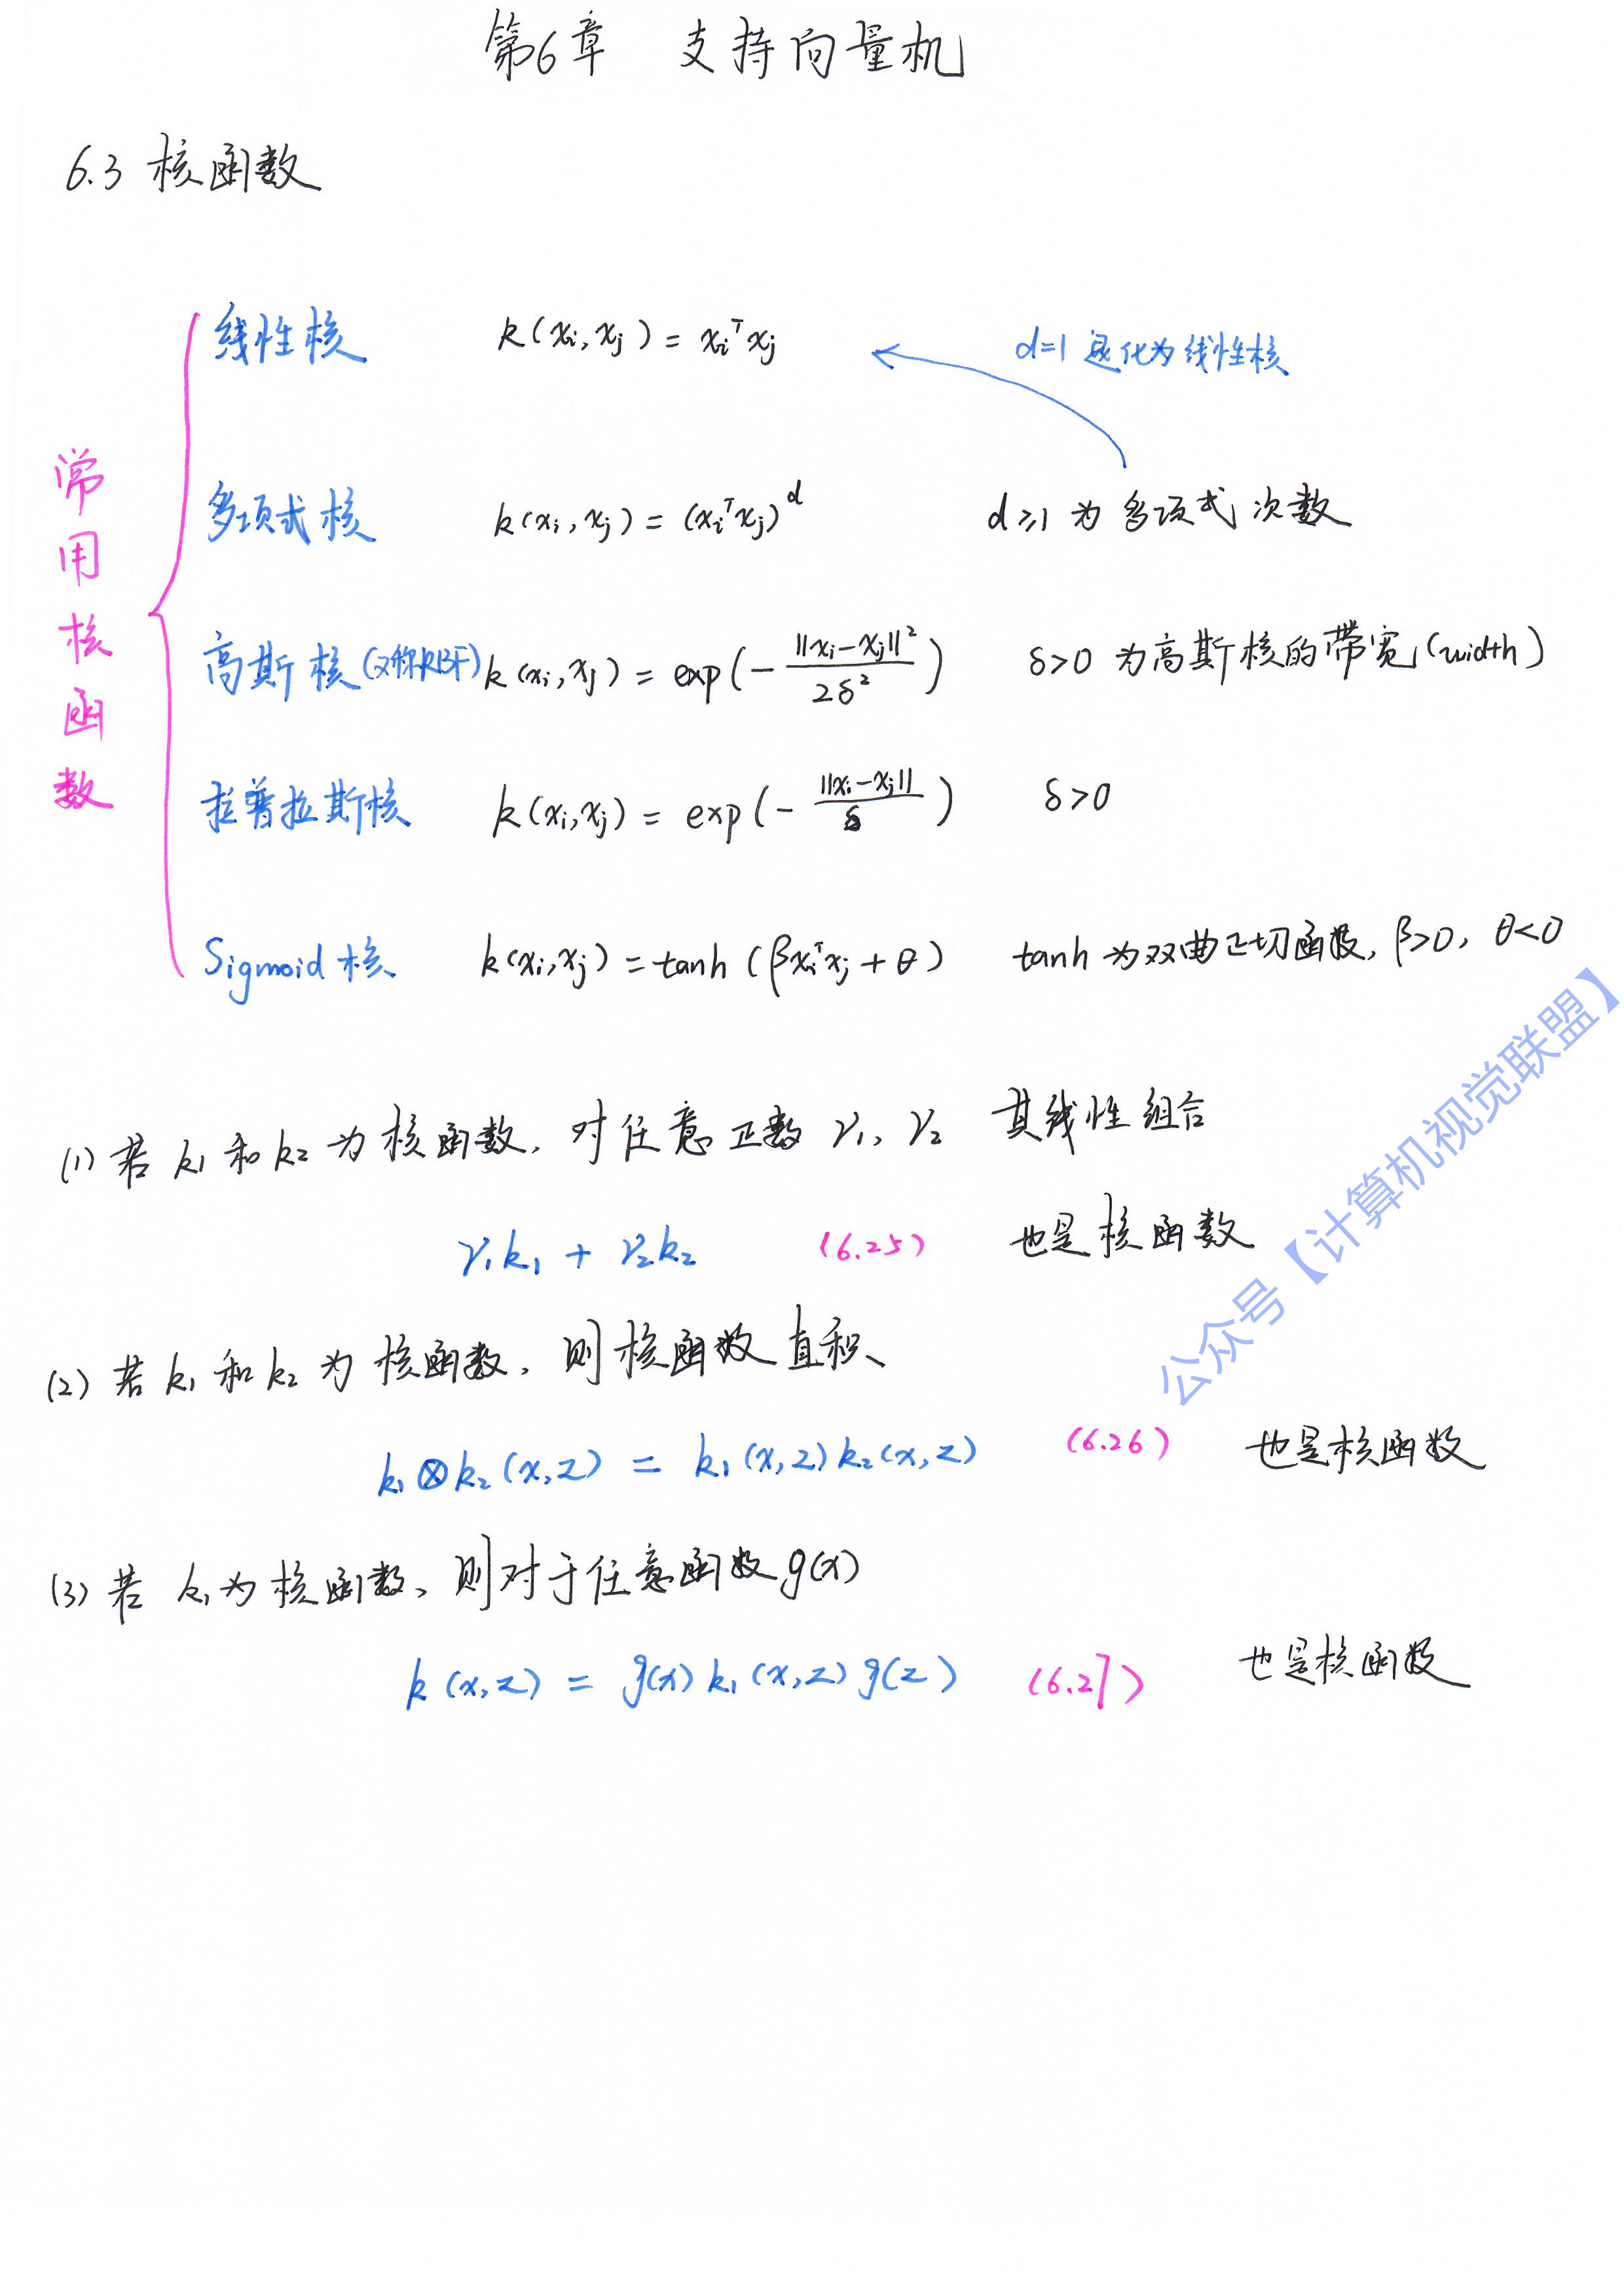 第6章 支持向量机
6.3 核函数
常用核函数
线性核 k(xi, xj) = xiᵀxj d=1 退化为线性核
多项式核 k(xi, xj) = (xiᵀxj)ᵈ d≥1 为多项式次数
高斯核(又称RBF) k(xi, xj) = exp(- ||xi-xj||² / 2δ²) δ>0 为高斯核的带宽(width)
拉普拉斯核 k(xi, xj) = exp(- ||xi-xj|| / δ) δ>0
Sigmoid 核 k(xi, xj) = tanh(βxiᵀxj + θ) tanh为双曲正切函数, β>0, θ<0
(1) 若 k₁ 和 k₂ 为核函数, 对任意正数 γ₁、γ₂ 其线性组合
γ₁k₁ + γ₂k₂ (6.25) 也是核函数
(2) 若 k₁ 和 k₂ 为核函数, 则核函数直积
k₁⊗k₂(x,z) = k₁(x,z)k₂(x,z) (6.26) 也是核函数
(3) 若 k₁为核函数, 则对于任意函数g(x)
k(x,z) = g(x)k₁(x,z)g(z) (6.27) 也是核函数
公众号【计算机视觉联盟】